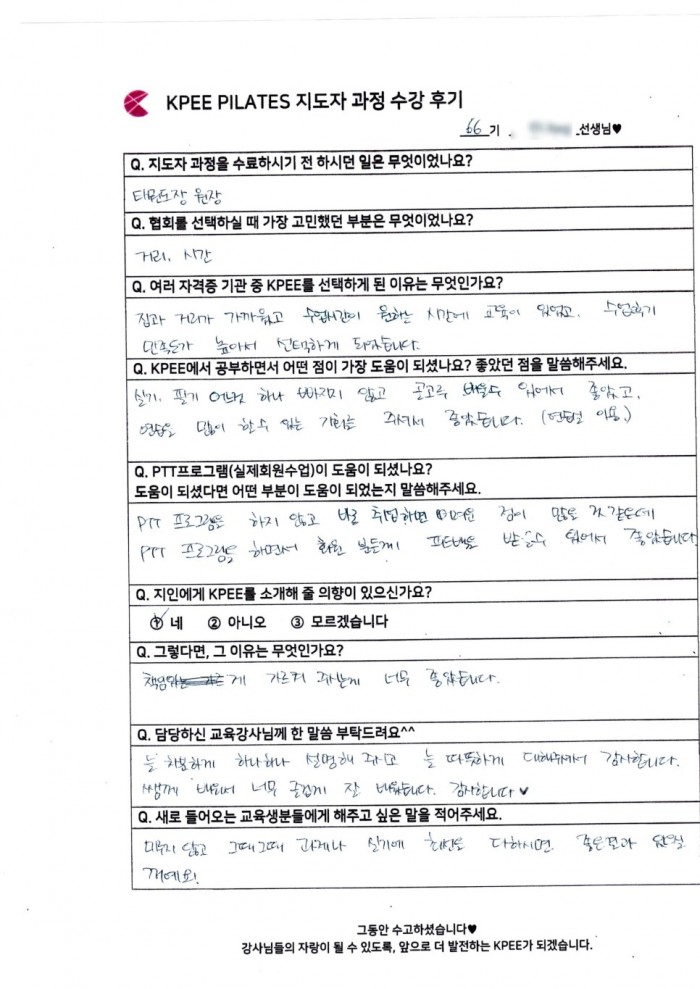 KPEE PILATES 지도자 과정 수강 후기
66 기 . 선생님♥
Q. 지도자 과정을 수료하시기 전 하시던 일은 무엇이었나요?
태권도장 원장
Q. 협회를 선택하실 때 가장 고민했던 부분은 무엇이었나요?
거리, 시간
Q. 여러 자격증 기관 중 KPEE를 선택하게 된 이유는 무엇인가요?
집과 거리가 가까웠고 수업시간이 원하는 시간에 교육이 있었고. 수업후기
만족도가 높아서 선택하게 되었습니다.
Q. KPEE에서 공부하면서 어떤 점이 가장 도움이 되셨나요? 좋았던 점을 말씀해주세요.
실기, 필기 어느것 하나 빠지지 않고 골고루 배울수 있어서 좋았고,
연습을 많이 할수 있는 기회를 주셔서 좋았습니다. (연습실 이용)
Q. PTT프로그램(실제회원수업)이 도움이 되셨나요?
도움이 되셨다면 어떤 부분이 도움이 되었는지 말씀해주세요.
PTT 프로그램을 하지 않고 바로 취업하면 어려운 점이 많을 것 같은데
PTT 프로그램을 하면서 회원 분들께 피드백을 받을수 있어서 좋았습니다
Q. 지인에게 KPEE를 소개해 줄 의향이 있으신가요?
① 네 ② 아니오 ③ 모르겠습니다
Q. 그렇다면, 그 이유는 무엇인가요?
책임 게 가르쳐 주시는게 너무 좋았습니다.
Q. 담당하신 교육강사님께 한 말씀 부탁드려요^^
늘 친절하게 하나하나 설명해 주시고 늘 따뜻하게 대해주셔서 감사합니다.
쌤께 배워서 너무 즐겁게 잘 배웠습니다. 감사합니다 ♥
Q. 새로 들어오는 교육생분들에게 해주고 싶은 말을 적어주세요.
미루지 않고 그때그때 과제나 실기에 최선을 다하시면 좋은결과 있으실
꺼예요!
그동안 수고하셨습니다♥
강사님들의 자랑이 될 수 있도록, 앞으로 더 발전하는 KPEE가 되겠습니다.